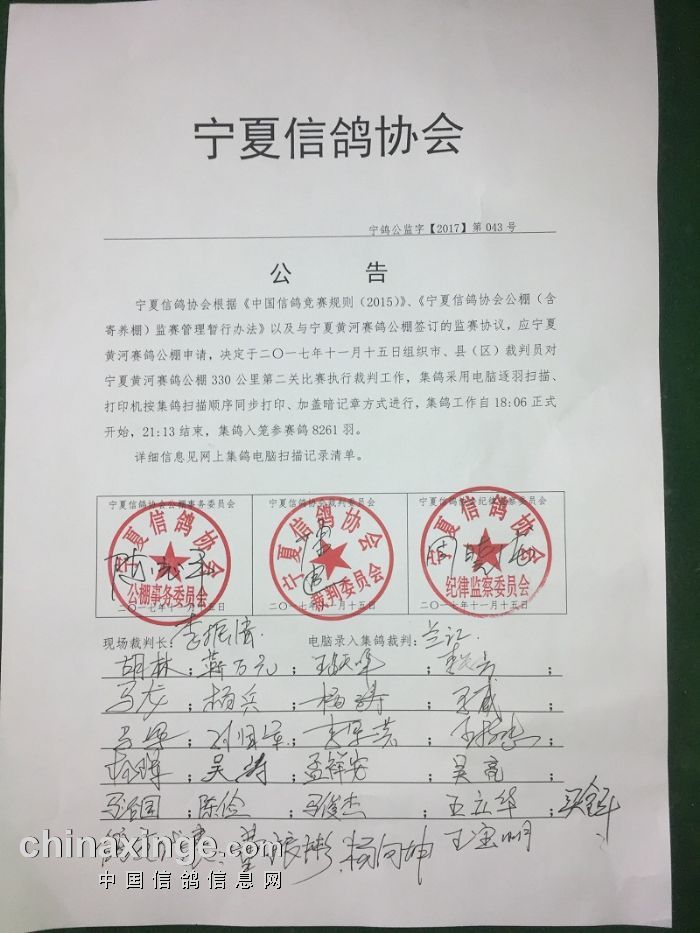 宁夏信鸽协会
宁鸽公监字【2017】第 043 号
公 告
宁夏信鸽协会根据《中国信鸽竞赛规则（2015）》、《宁夏信鸽协会公棚（含
寄养棚）监赛管理暂行办法》以及与宁夏黄河赛鸽公棚签订的监赛协议，应宁夏
黄河赛鸽公棚申请，决定于二〇一七年十一月十五日组织市、县（区）裁判员对
宁夏黄河赛鸽公棚 330 公里第二关比赛执行裁判工作，集鸽采用电脑逐羽扫描、
打印机按集鸽扫描顺序同步打印、加盖暗记章方式进行，集鸽工作自 18:06 正式
开始，21:13 结束，集鸽入笼参赛鸽 8261 羽。
详细信息见网上集鸽电脑扫描记录清单。
宁夏信鸽协会公棚事务委员会 宁夏信鸽协会裁判委员会 宁夏信鸽协会纪律监察委员会
宁夏信鸽协会 宁夏信鸽协会 宁夏信鸽协会
公棚事务委员会 裁判委员会 纪律监察委员会
二〇一七年十一月十五日 二〇一七年十一月十五日 二〇一七年十一月十五日
现场裁判长： 李振清 电脑录入集鸽裁判： 兰江
胡林；蕲万元； ； ；
马龙；杨兵；杨涛；王威；
； ； ； ；
；吴涛；孟祥安；吴亮；
马治国；陈俭；马俊杰；王立华；
杨向坤
chinaxinge.com
中国信鸽信息网